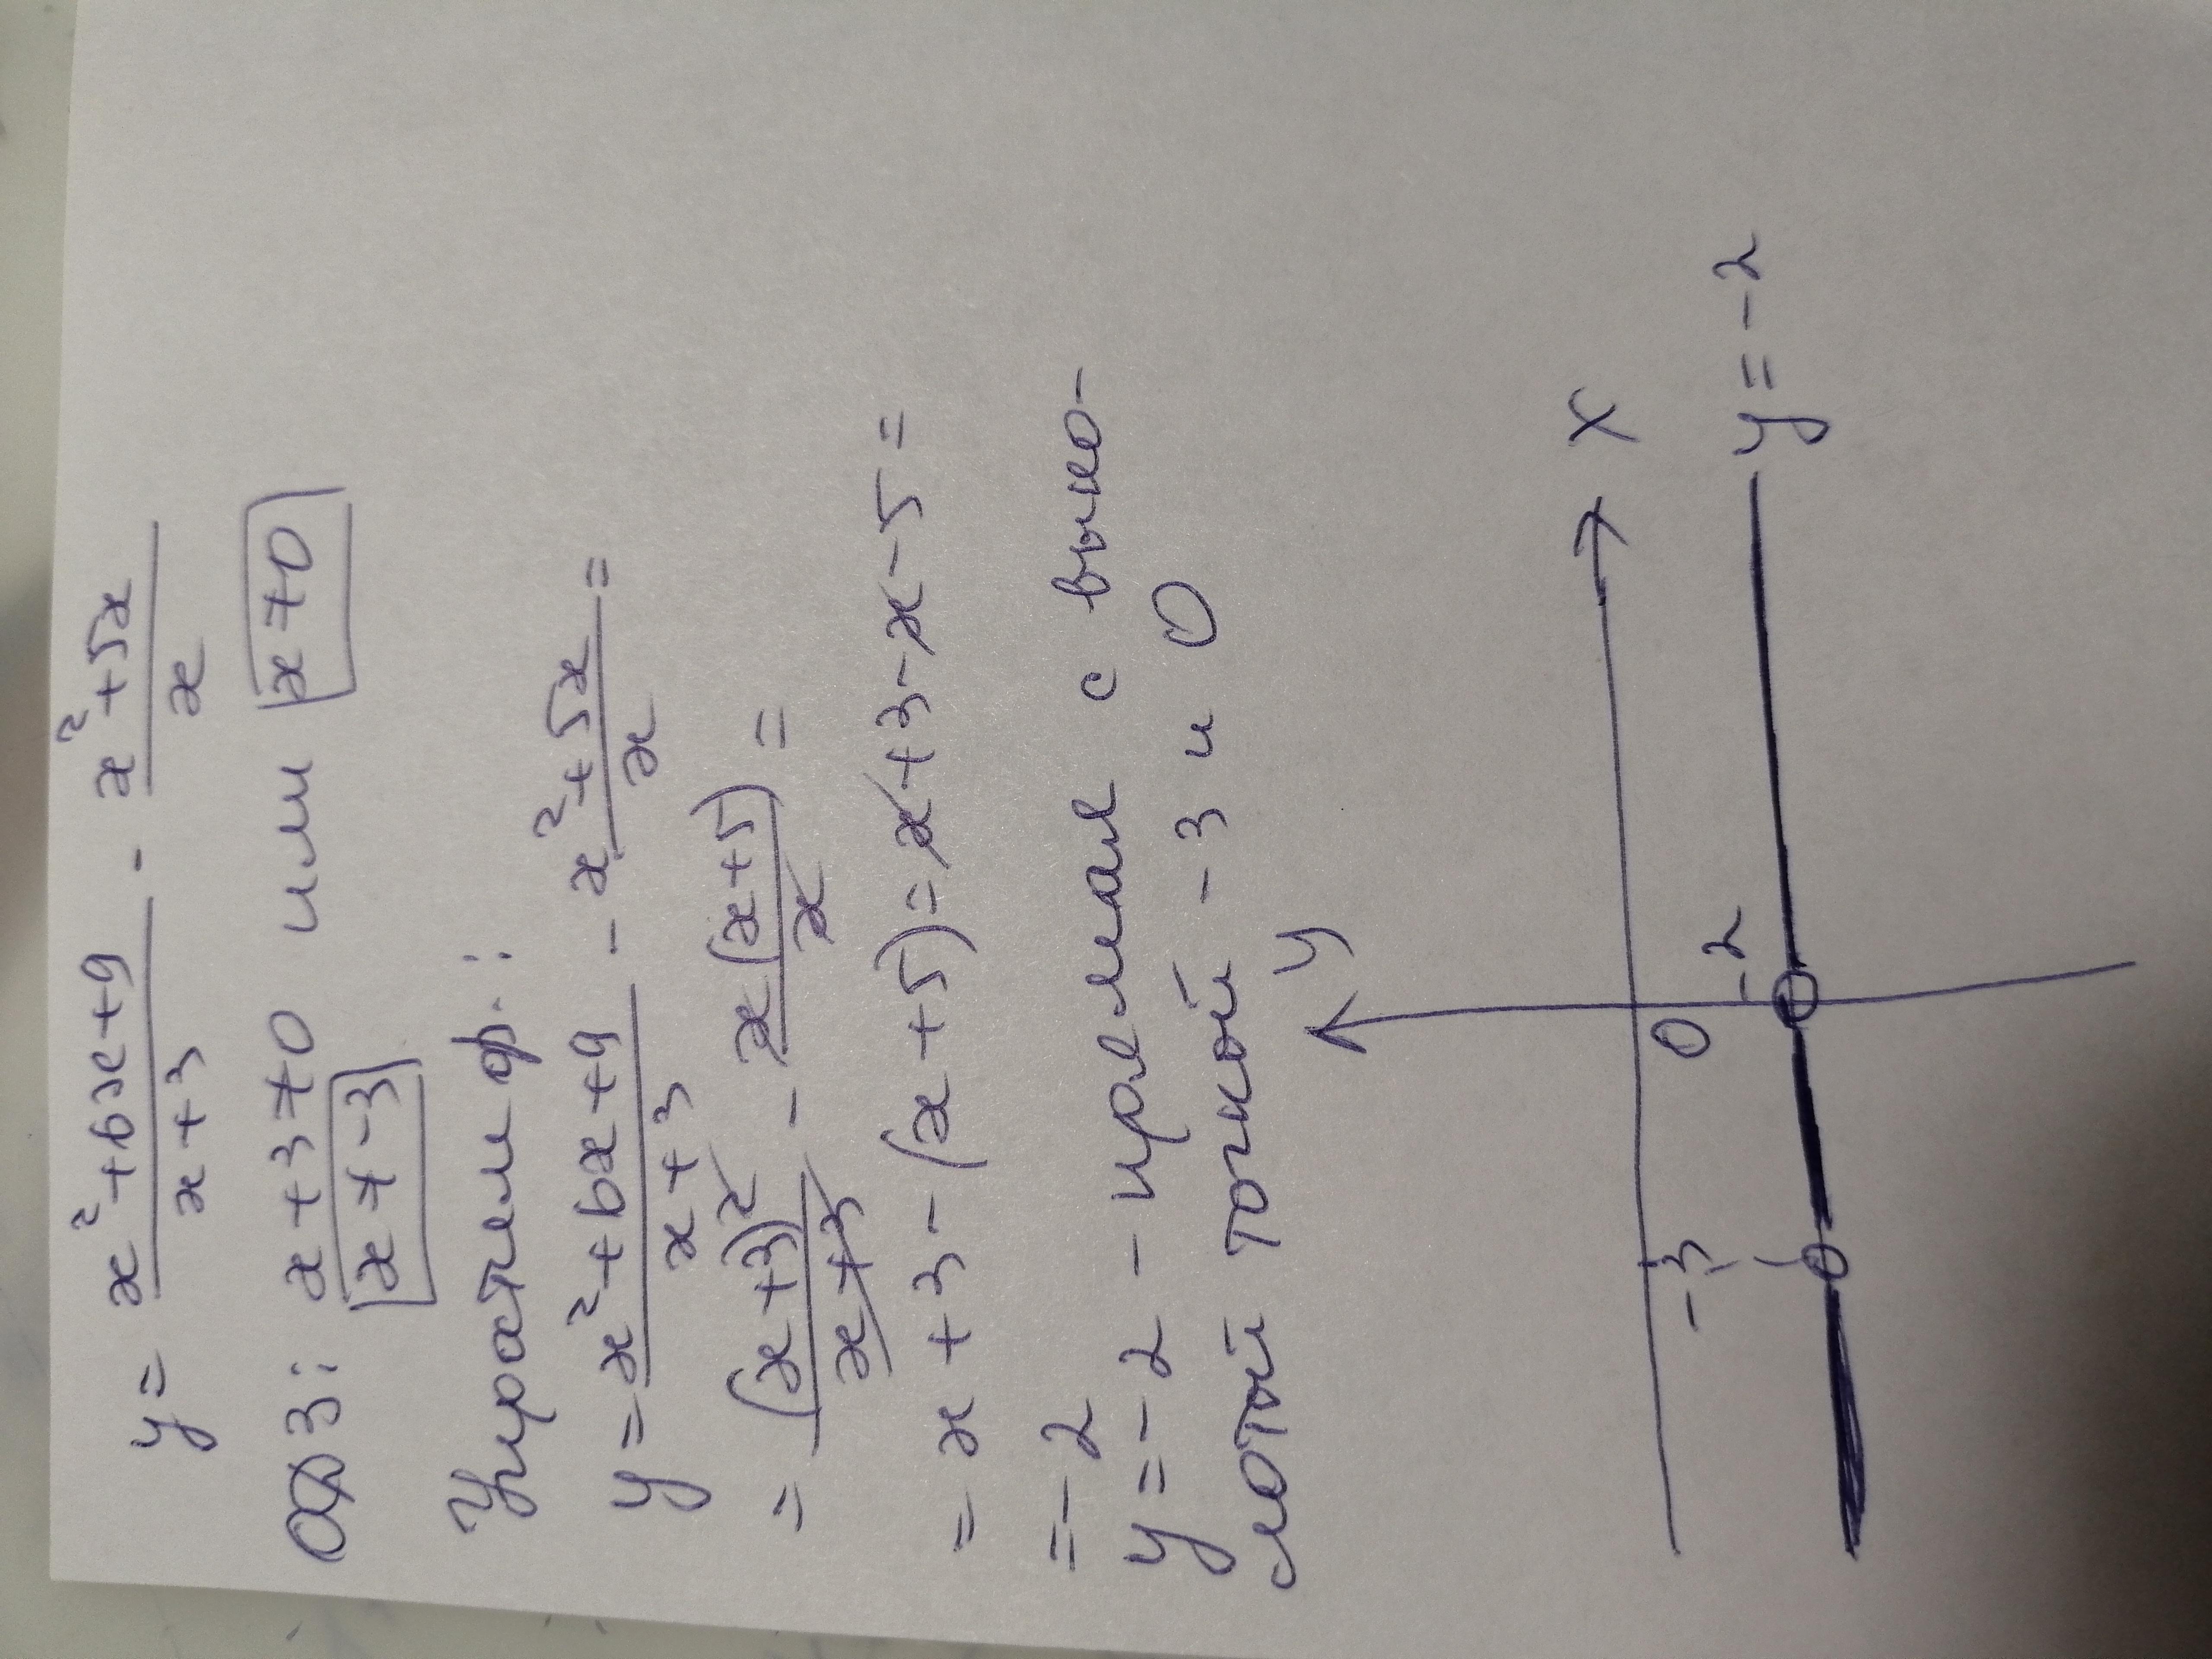 y = (x²+6x+9)/(x+3) - (x²+5x)/x
ОДЗ: x+3≠0 или x≠0
x≠-3
Упростим ф.:
y = (x²+6x+9)/(x+3) - (x²+5x)/x =
= (x+3)²/(x+3) - x(x+5)/x =
= x+3-(x+5)=x+3-x-5=
=-2
y=-2 - прямая с выко-
лотой точкой -3 и 0
y
x
0
-2
-3
y=-2